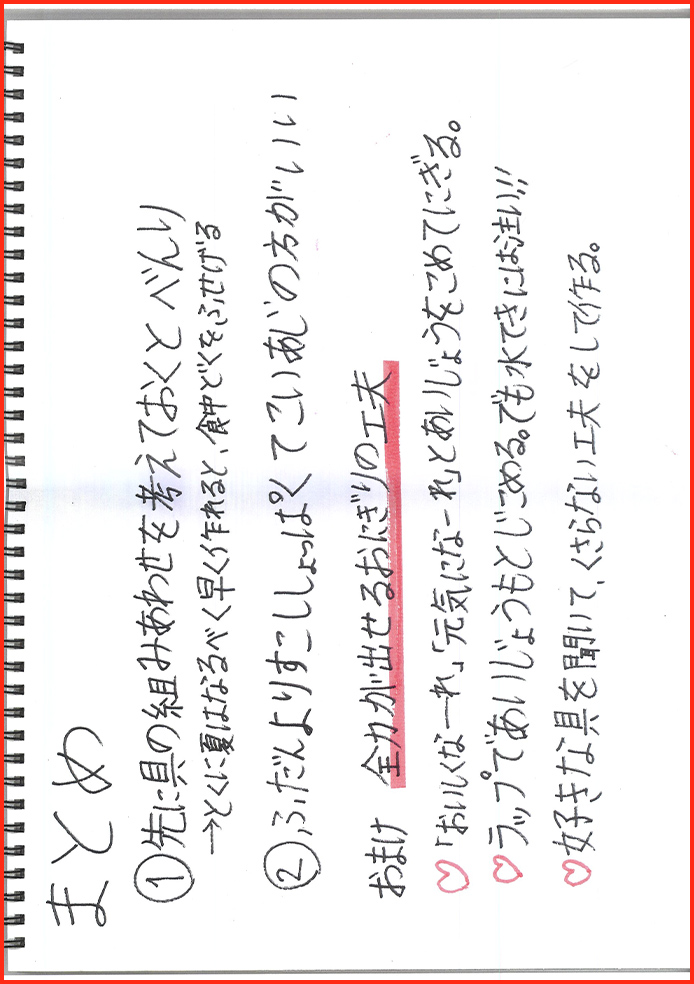 まとめ
①先に具の組みあわせを考えておくとべんり
→とくに夏はなるべく早く作れると、食中どくをふせげる
②ふだんよりすこししょっぱくてこいあじの方がいい
おまけ 全力が出せるおにぎりの工夫
♡「おいしくなーれ」「元気になーれ」とあいじょうをこめてにぎる。
♡ラップであいじょうもとじこめる。でも水てきには注い!!
♡好きな具を聞いて、くさらない工夫をして作る。